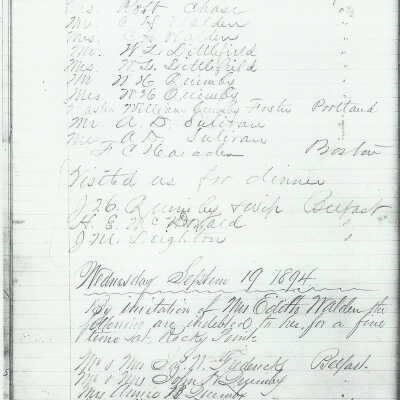 Mrs. Robt Chase "
Mr. C H Walden "
Mrs. C H Walden "
Mr. W. L. Littlefield "
Mrs. W. L. Littlefield "
Mr W H Quimby "
Mrs W H Quimby "
William Quimby Foster Portland
Mr. A. D. Sulivan "
Mrs A. D. Sulivan "
F C Boston
Visited us for dinner
J H. Quimby & wife Belfast
H. E. McDonald "
J M. Leighton "
Wednesday Septem 19 1894
By invitation of Mrs Edith Walden the
following are indebted to her for a fine
time at Rocky Point.
Mr & Mrs N. Frederick Belfast.
Mr & Mrs John H Quimby "
Mrs H Quimby "